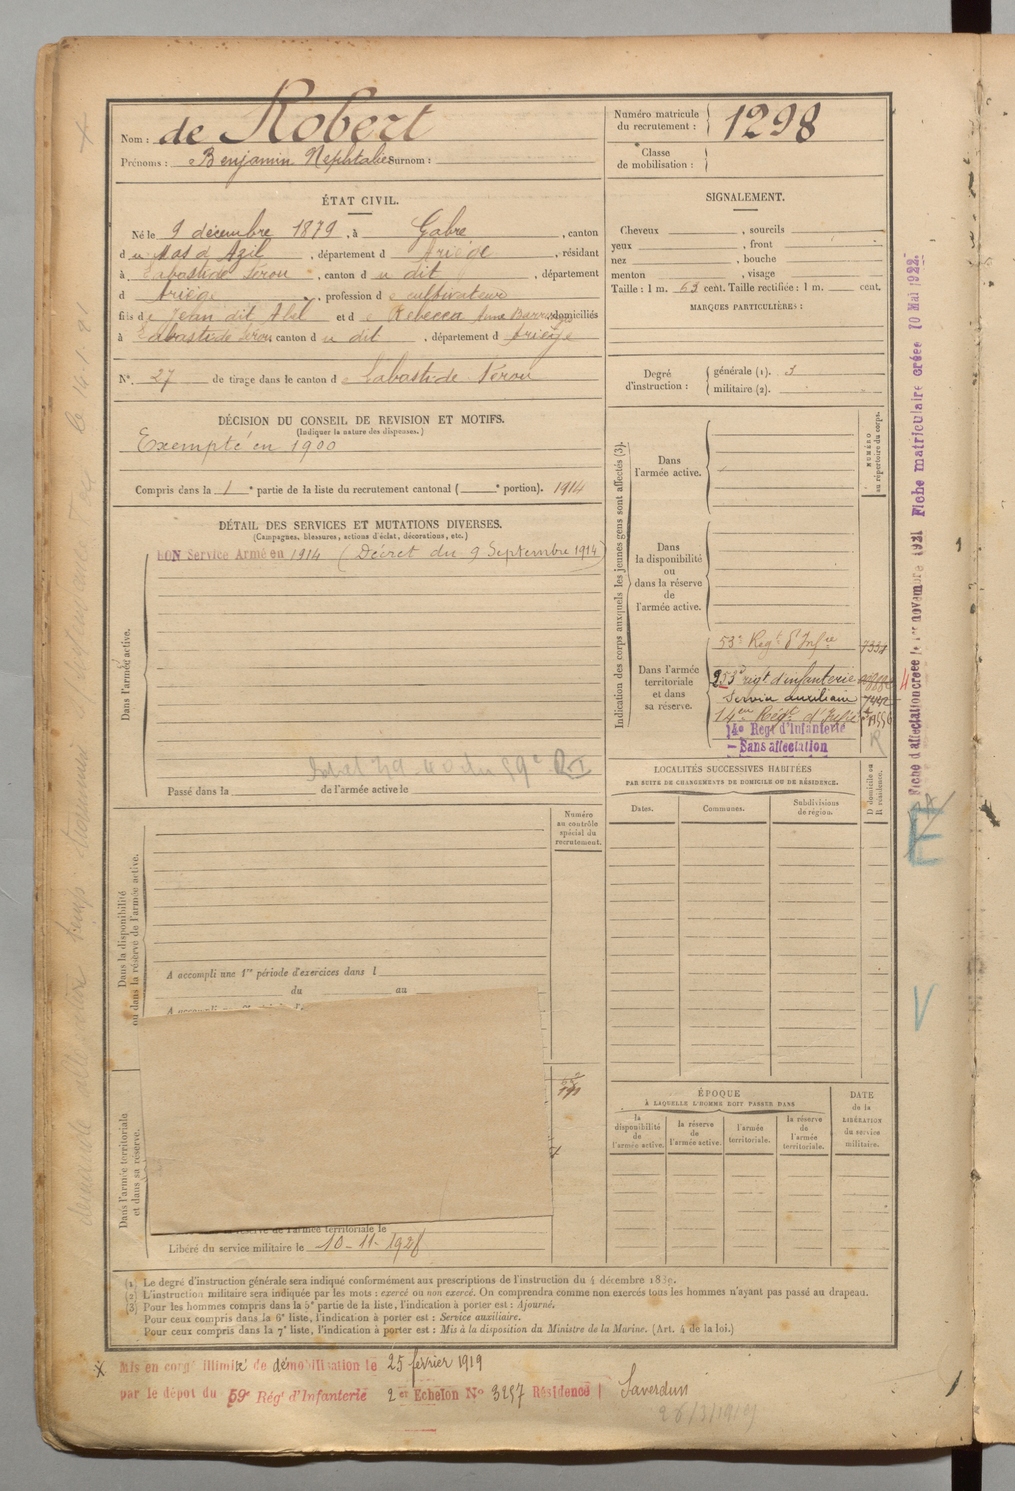 Nom : de Robert
Prénoms : Benjamin Nephtalie Surnom :
Numéro matricule
du recrutement : 1298
Classe
de mobilisation :
ÉTAT CIVIL.
Né le 9 décembre 1879, à Gabre, canton
du Mas d'Azil, département d Ariège, résidant
à Labastide Sérou, canton du dit, département
d Ariège, profession de cultivateur
fils de Jean dit Abel et de Rebecca domiciliés
à Labastide Sérou canton du dit, département d Ariège
N° 27 de tirage dans le canton de Labastide Sérou
SIGNALEMENT.
Cheveux , sourcils
yeux , front
nez , bouche
menton , visage
Taille : 1 m. 63 cent. Taille rectifiée : 1 m. cent.
MARQUES PARTICULIÈRES :
Degré
d'instruction :
générale (1). 3
militaire (2).
DÉCISION DU CONSEIL DE REVISION ET MOTIFS.
(Indiquer la nature des dispenses.)
Exempté en 1900
Compris dans la 1e partie de la liste du recrutement cantonal ( e portion). 1914
DÉTAIL DES SERVICES ET MUTATIONS DIVERSES.
(Campagnes, blessures, actions d'éclat, décorations, etc.)
BON Service Armé en 1914 (Décret du 9 Septembre 1914)
Dans l'armée active.
Passé dans la de l'armée active le
Indication des corps auxquels les jeunes gens sont affectés (3).
NUMÉRO
au répertoire du corps.
Dans
l'armée active.
Dans
la disponibilité
ou
dans la réserve
de
l'armée active.
Dans l'armée
territoriale
et dans
sa réserve.
53e Régt d'Infie
253e régt d'infanterie
Service auxiliaire
14eme Régt d'Infie
14e Régt d'Infanterie
Sans affectation
R
LOCALITÉS SUCCESSIVES HABITÉES
PAR SUITE DE CHANGEMENTS DE DOMICILE OU DE RÉSIDENCE.
D domicile ou
R résidence.
Dates.
Communes.
Subdivisions
de région.
Numéro
au contrôle
spécial du
recrutement.
Dans la disponibilité
ou dans la réserve de l'armée active.
A accompli une 1re période d'exercices dans l
du au
Dans l'armée territoriale
et dans sa réserve.
Libéré du service militaire le 10-11-1928
ÉPOQUE
À LAQUELLE L'HOMME DOIT PASSER DANS
la
disponibilité
de
l'armée active.
la réserve
de
l'armée active.
l'armée
territoriale.
la réserve
de
l'armée
territoriale.
DATE
de la
LIBÉRATION
du service
militaire.
(1) Le degré d'instruction générale sera indiqué conformément aux prescriptions de l'instruction du 4 décembre 1889.
(2) L'instruction militaire sera indiquée par les mots : exercé ou non exercé. On comprendra comme non exercés tous les hommes n'ayant pas passé au drapeau.
(3) Pour les hommes compris dans la 5e partie de la liste, l'indication à porter est : Ajourné.
Pour ceux compris dans la 6e liste, l'indication à porter est : Service auxiliaire.
Pour ceux compris dans la 7e liste, l'indication à porter est : Mis à la disposition du Ministre de la Marine. (Art. 4 de la loi.)
x Mis en congé illimité de démobilisation le 25 février 1919
par le dépôt du 59e Régt d'Infanterie 2e Echelon N° 3257 Résidence Saverdun
Fiche d'affectation créée le 1er novembre 1921 Fiche matriculaire créée 10 Mai 1922.